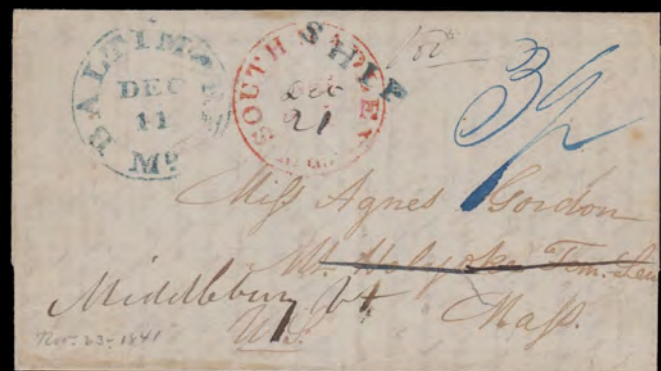 BALTIMORE
DEC
11
Md
SOUTH HADLEY
Dec
21
SHIP
39
Miss Agnes Gordon
Mt. Holyoke Fem. Sem
Middlebury Vt
Mass.
U.S.
Nov. 23-1841